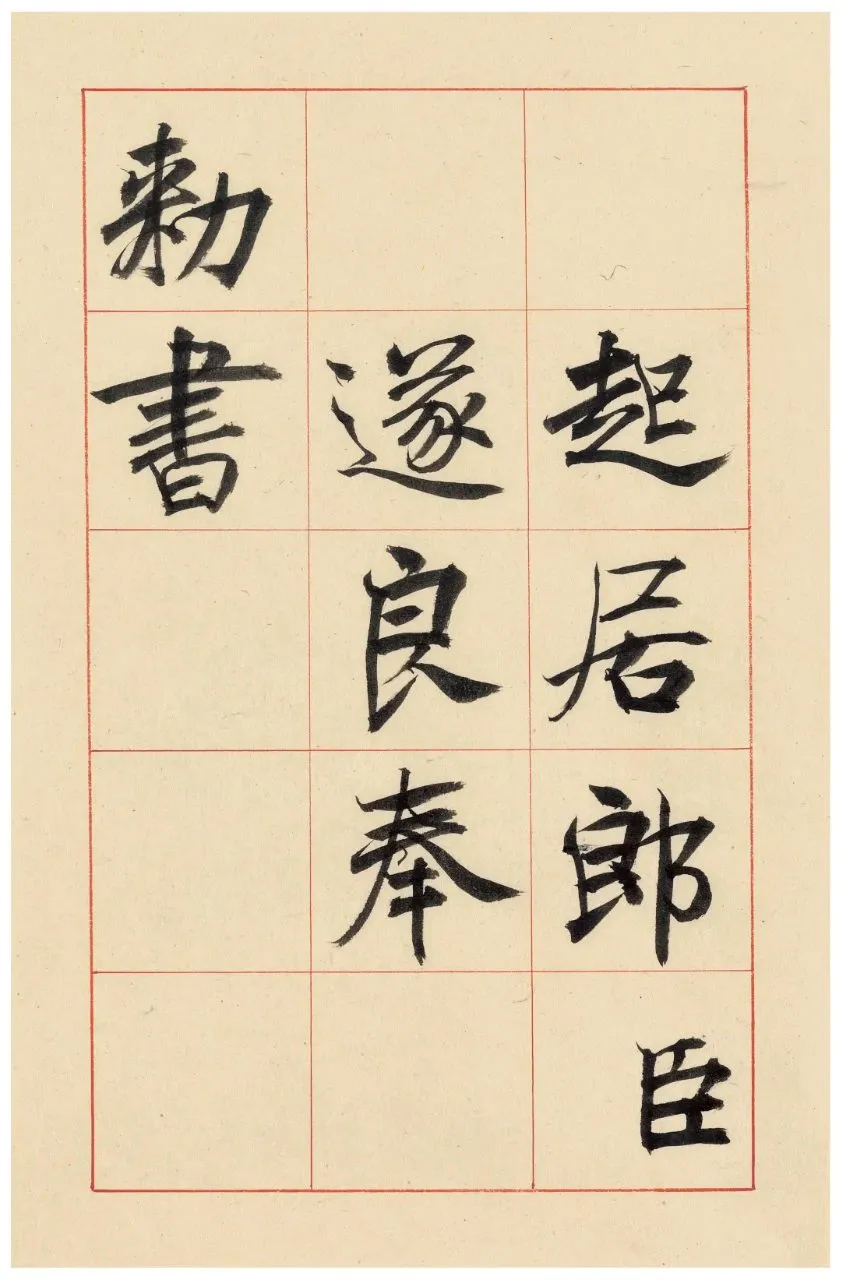 起居郎臣
遂良奉
勅書